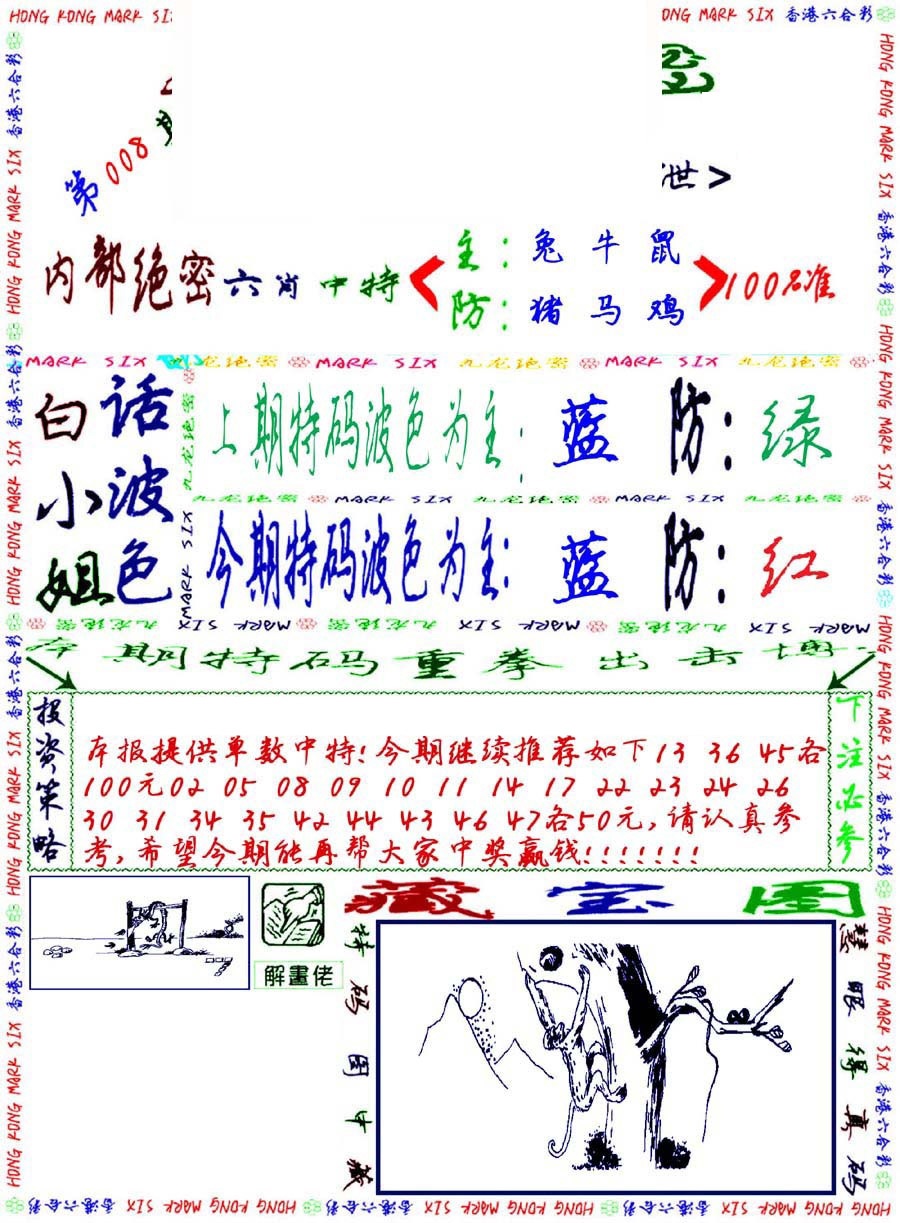 HONG KONG MARK SI
ONG MARK SIX 香港六合彩
第008期
泄>
内部绝密六肖中特
主：兔牛鼠
防：猪马鸡
100%准
MARK SIX 九龙绝密 MARK SIX 九龙绝密 MARK SIX 九龙绝密
白小姐
话波色
上期特码波色为主：蓝 防：绿
九龙绝密 MARK SIX 九龙绝密 MARK SIX 九龙绝密
今期特码波色为主：蓝 防：红
九龙绝密 MARK SIX 九龙绝密 MARK SIX 九龙绝密 MARK SIX
期特码重拳出击
投资策略
本报提供单数中特!今期继续推荐如下13 36 45各
100元02 05 08 09 10 11 14 17 22 23 24 26
30 31 34 35 42 44 43 46 47各50元,请认真参
考,希望今期能再帮大家中奖赢钱!!!!!!!
下注必参
藏宝图
解畫佬
特码图中藏
慧眼得真码
HONG KONG MARK SIX 香港六合彩